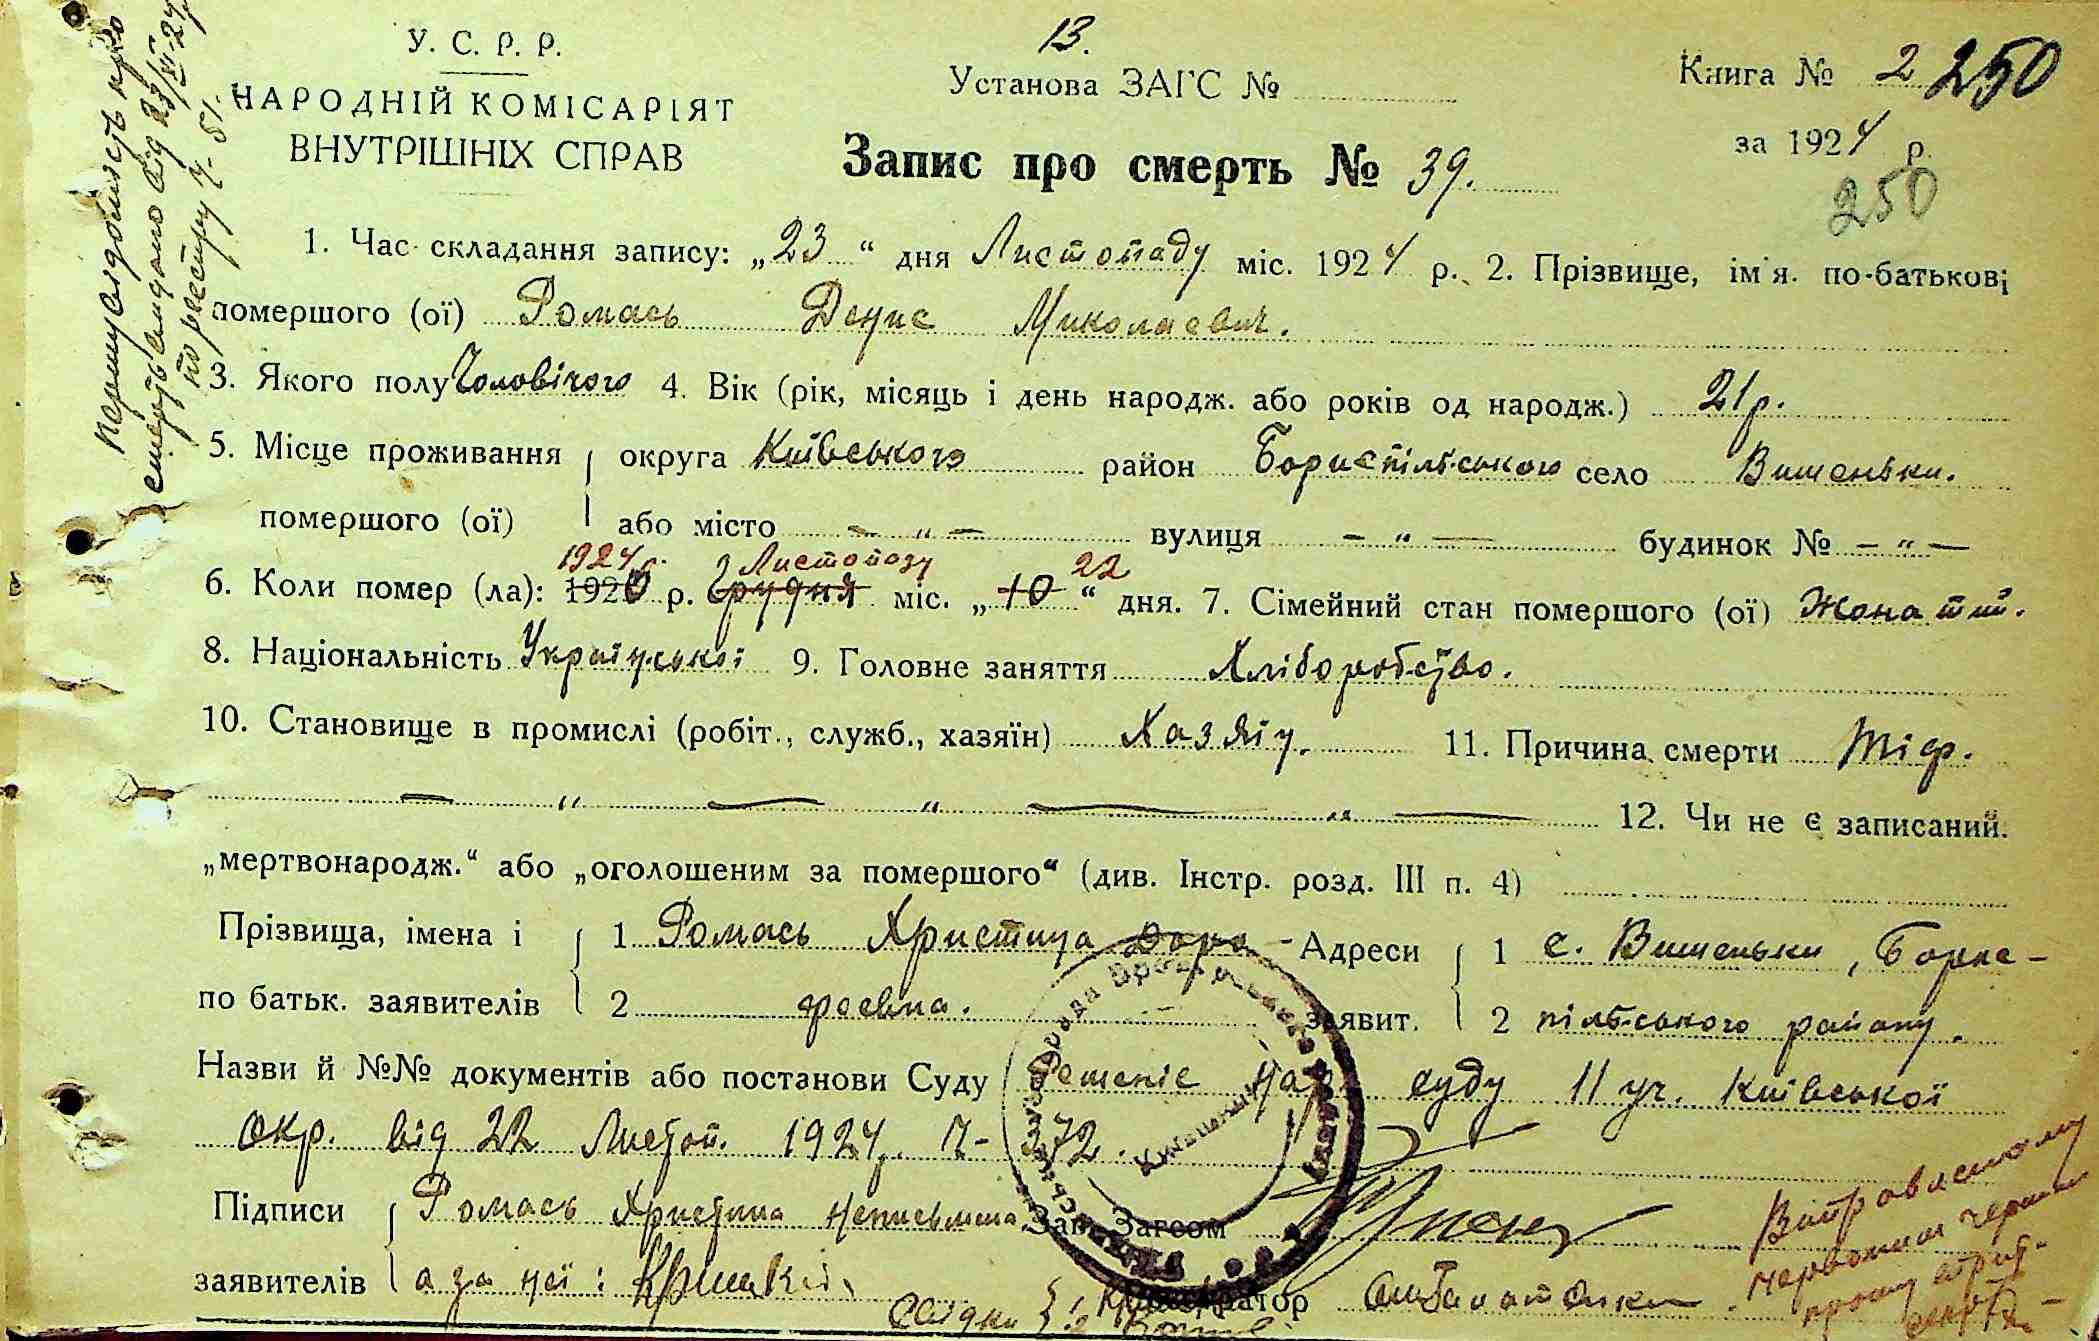 Першу видомість про
смерть видано від 23/XI-24 р.
по реєстру Ч-51.
У. С. Р. Р.
НАРОДНІЙ КОМІСАРІЯТ
ВНУТРІШНІХ СПРАВ
13.
Установа ЗАГС №
Книга № 2 250
за 1924 р.
250
Запис про смерть № 39.
1. Час складання запису: „23“ дня Листопаду міс. 1924 р. 2. Прізвище, ім'я. по-батькові
помершого (ої) Ромась Денис Миколаевич.
3. Якого полу Чоловічого 4. Вік (рік, місяць і день народж. або років од народж.) 21 р.
5. Місце проживання округа Київського район Бориспільського село Вишеньки.
помершого (ої) або місто — „ — вулиця — „ — будинок № — „ —
1924 р. Листопаду 22
6. Коли помер (ла): 1920 р. Грудня міс. „10“ дня. 7. Сімейний стан помершого (ої) Жонатий.
8. Національність Української 9. Головне заняття Хліборобство.
10. Становище в промислі (робіт., служб., хазяїн) Хазяїн. 11. Причина смерти Тіф.
— „ — „ — „ — 12. Чи не є записаний.
„мертвонародж.“ або „оголошеним за помершого“ (див. Інстр. розд. III п. 4)
Прізвища, імена і 1 Ромась Христина Доро- Адреси 1 с. Вишеньки, Борис-
по батьк. заявителів 2 феевна. заявит. 2 пільського району.
Назви й №№ документів або постанови Суду Решеніе Нар. суду 11 уч. Київської
окр. від 22 Листоп. 1924 р. Ч- 372.
Підписи Ромась Христина неписьмена Зав. Загсом
заявителів а за неї: Реєстратор
Свідки 1. 2.
Виправленому
червоним чернилом
прошу